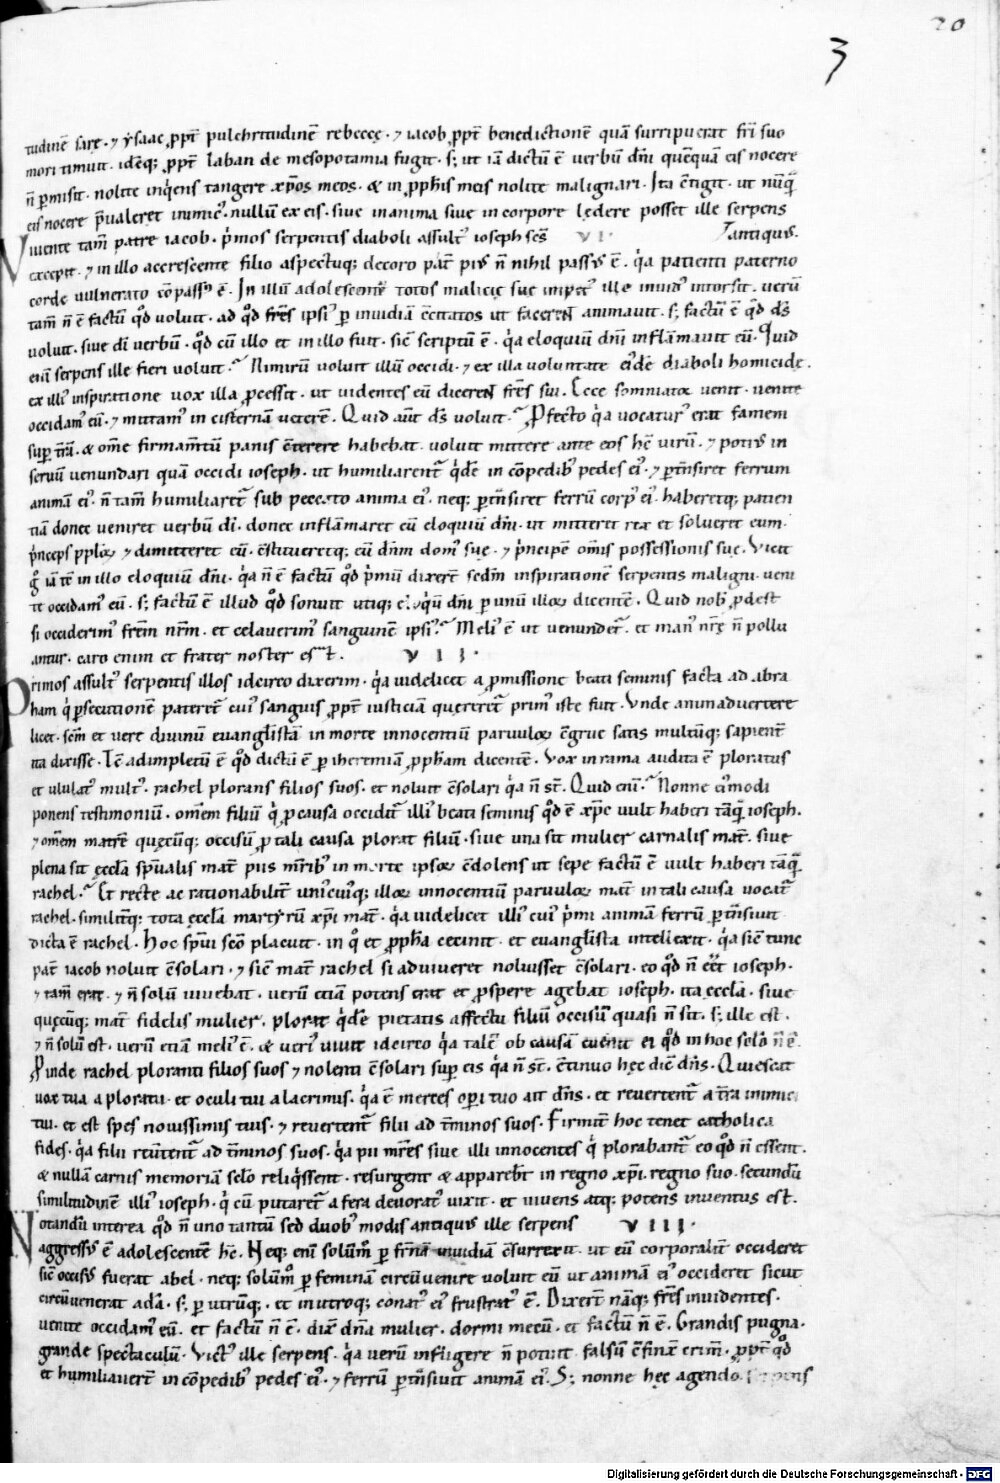 20
3
tudinē sarę · ⁊ ẏsaac ꝓpt̄ pulchritudinē rebeccę · ⁊ iacob ꝓpt̄ benedictionē quā surripuerat fr̄i suo
mori timuit · idēq; ꝓpt̄ laban de mesopotamia fugit · s; ut iā dictū ē verbū dn̄i quēquā eis nocere
n̄ ꝑmisit · nolite inq̇ens tangere xp̄os meos · & in ꝓph̄is meis nolite malignari · Ita ↄ̄tigit · ut nūq̄
eis nocere p̄ualeret inimicꝰ · nullū ex eis · siue in anima siue in corpore lędere posset ille serpens
Viuente tam̄ patre iacob · p̍mos serpentis diaboli assultꝰ ioseph sc̄s VI · antiquꝰ ·
excepit · ⁊ in illo accrescente filio aspectuq; decoro pat̄ piꝰ n̄ nihil passꝰ ē · q̍a patienti paterno
corde uulnerato ↄ̄passꝰ ē · In illū adolescentē totos malicię suę impetꝰ ille inuidꝰ intorsit · uerū
tam̄ n̄ ē factū qd̊ voluit · ad qd̊ fr̄es ipsiꝰ ꝑ inuidiā ↄ̄citatos ut facerent animauit · s; factū ē qd̊ ds̄
voluit · siue dī verbū · qd̊ cū illo et in illo fuit · sic̄ scriptū ē · q̍a eloquiū dn̄i inflāmauit eū · Quid
eni͞ serpens ille fieri voluit · Nimirū voluit illū occidi · ⁊ ex illa voluntate eiꝰdē diaboli homicidę ·
ex illiꝰ inspiratione vox illa ꝓcessit · ut videntes eū dicerent fr̄es sui · Ecce somniatoꝝ venit · venite
occidamꝰ eū · ⁊ mittamꝰ in cisternā veterē · Quid aūt ds̄ voluit · Ꝓfecto q̍a vocaturꝰ erat famem
suꝑ tr̄ā · & om̄e firmam̄tū panis ↄ̄terere habebat · voluit mittere ante eos hc̄ virū · ⁊ potiꝰ in
seruū venundari quā occidi ioseph · ut humiliarentꝰ q̍dē in ↄ̄pedibꝰ pedes eiꝰ · ⁊ ꝑtn̄siret ferrum
animā eiꝰ · n̄ tam̄ humiliaretꝰ sub peccato anima eiꝰ · neq; ꝑtn̄siret ferrū corpꝰ eiꝰ · haberetq; patien
tiā donec veniret verbū dī · donec inflāmaret eū eloquiū dn̄i · ut mitteret rex et solueret eum ·
p̍nceps pploꝝ ⁊ dimitteret eū · ↄ̄stitueretq; eū dn̄m domꝰ suę · ⁊ p̍ncipē om̄is possessionis suę · Vicit
g̊ iā tē in illo eloquiū dn̄i · q̍a n̄ ē factū qd̊ p̍mū dixerꝰ scd̄m inspirationē serpentis maligni · veni
te occidamꝰ eū · s; factū ē illud qd̊ sonuit utiq; eloquiū dn̄i ꝑ unū illoꝝ dicentē · Quid nobꝰ ꝓdest
si occiderimꝰ fr̄em nr̄m · et celauerimꝰ sanguinē ipsiꝰ · Meliꝰ ē ut venundet̄ · et manꝰ nr̄ę n̄ pollu
antur · caro enim et frater noster est · VII ·
Primos assultꝰ serpentis illos idcirco dixerim · q̍a uidelicet a ꝓmissione beati seminis facta ad abra
ham q̍ ꝑsecutionē pateret̄ cuiꝰ sanguis ꝓpt̄ iusticiā quereret̄ primꝰ iste fuit · Vnde animaduertere
licet · sc̄m et vere diuinū euanḡlistā in morte innocentiū paruuloꝝ ↄ̄grue satis multūq; sapient̄
ita dixisse · Tc̄ adimpletū ē qd̊ dictū ē ꝑ ihermiā ꝓph̄am dicentē · Vox in rama audita ē ploratus
et ululatꝰ multꝰ · rachel plorans filios suos · et noluit ↄ̄solari q̍a n̄ st̄ · Quid enī · Nonne eiꝰmodi
ponens testimoniū · om̄em filiū q̍ ꝓ causa occidit̄ illiꝰ beati seminis qd̊ ē xp̄c uult haberi tāq̄ ioseph ·
⁊ om̄em matrē quęcūq; occisū ꝓ tali causa plorat filiū · siue una sit mulier carnalis mat̄ · siue
plena sit ęccl̄a sp̄ualis mat̄ piis mr̄ibꝰ in morte ipsoꝝ ↄ̄dolens ut sepe factū ē uult haberi tāq̄
rachel · Et recte ac rationabilit̄ uniꝰcuiꝰq; illoꝝ innocentiū paruuloꝝ mat̄ in tali causa vocat̄
rachel · similit̄q; tota ęccl̄a martyrū xp̄i mat̄ · q̍a uidelicet illiꝰ cuiꝰ p̍mi animam ferrū ꝑtn̄siuit
dicta ē rachel · Hoc sp̄ui sc̄o placuit · in q̊ et ꝓph̄a cecinit · et euanḡlista intellexit · q̍a sic̄ tunc
pat̄ iacob noluit ↄ̄solari · ⁊ sic̄ mat̄ rachel si aduiueret noluisset ↄ̄solari · eo qd̊ n̄ eēt ioseph ·
⁊ tam̄ erat · ⁊ n̄ solū uiuebat · verū etiā potens erat et ꝓspere agebat ioseph · ita ęccl̄a · siue
quęcūq; mat̄ fidelis mulier · plorat q̍dē pietatis affectu filiū occisū quasi n̄ sit · s; ille est ·
⁊ n̄ solū est · verū etiā meliꝰ ē · & ueriꝰ uiuit idcirco q̍a talē ob causam euenit ei qd̊ in hoc sc̄lo n̄ ē ·
Ꝓinde rachel ploranti filios suos ⁊ nolenti ↄ̄solari suꝑ eis q̍a n̄ st̄ · ↄ̄tinuo hęc dic̄ dn̄s · Quiescat
uox tua a ploratu · et oculi tui a lacrimis · q̍a ē merces oꝑi tuo ait dn̄s · et reuertent̄ a tr̄a inimici
tui · et est spes nouissimis tuis · ⁊ reuertent̄ filii ad t̄minos suos · Firmit̄ hoc tenet catholica
fides · q̍a filii reūtent̄ ad t̄minos suos · q̍a pii mr̄es siue illi innocentes q̍ plorabant̄ eo qd̊ n̄ essent ·
& nullā carnis memoriā sc̄lo reliq̍ssent · resurgent & apparebt̄ in regno xp̄i · regno suo · secundū
similitudinē illiꝰ ioseph · q̍ cū putaret̄ a fera deuoratꝰ vixit · et viuens atq; potens inuentus est ·
Notandū interea qd̊ n̄ uno tantū sed duobꝰ modis antiquus ille serpens VIII ·
aggressꝰ ē adolescentē hc̄ · Neq; eni͞ solūm̊ ꝑ fr̄nā inuidiā ↄ̄surrexit · ut eū corporalit̄ occideret
sic̄ occisꝰ fuerat abel · neq; solūm̊ ꝑ feminam circūuenire voluit eū ut animam eiꝰ occideret sicut
circūuenerat adā · s; ꝑ utrūq; · et in utroq; conatꝰ eiꝰ frustratꝰ ē · Dixert̄ nāq; fr̄es inuidentes ·
venite occidamꝰ eū · et factū n̄ ē · dix̄ dn̄a mulier · dormi mecū · et factū n̄ ē · Grandis pugna ·
grande spectaculū · Victꝰ ille serpens · q̍a uerū infligere n̄ potuit falsū ↄ̄finx̄ crim̄ · ꝓpt̄ qd̊
et humiliauert̄ in ↄ̄pedibꝰ pedes eiꝰ · ⁊ ferrū ꝑtn̄siuit animā eiꝰ · S; nonne hęc agendo serpens
Digitalisierung gefördert durch die Deutsche Forschungsgemeinschaft - DFG